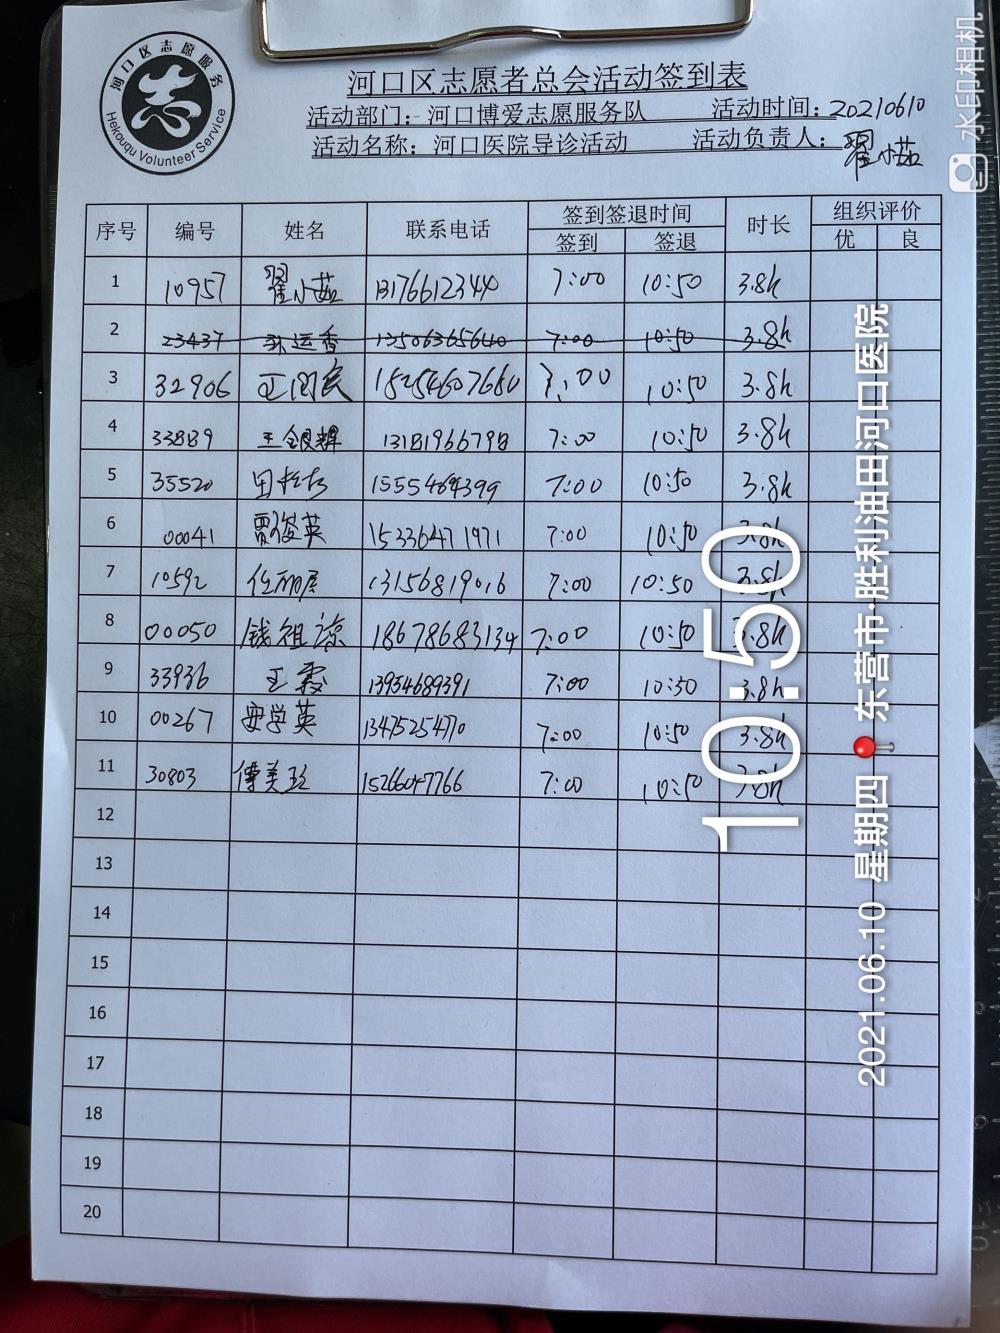 河口区志愿服务
Hekouqu Volunteer Service
河口区志愿者总会活动签到表
活动部门：河口博爱志愿服务队 活动时间：20210610
活动名称：河口医院导诊活动 活动负责人：翟小茹
序号 编号 姓名 联系电话 签到签退时间 时长 组织评价
签到 签退 优 良
1 10957 翟小茹 13176612344 7:00 10:50 3.8h
2 23437 孙运香 13506365640 7:00 10:50 3.8h
3 32906 15254607660 7:00 10:50 3.8h
4 33889 王银辉 13181966798 7:00 10:50 3.8h
5 35520 15554684399 7:00 10:50 3.8h
6 00041 贾俊英 15336471971 7:00 10:50 3.8h
7 10592 任丽君 13156819016 7:00 10:50 3.8h
8 00050 钱祖 18678683134 7:00 10:50 3.8h
9 33936 王霞 13954689391 7:00 10:50 3.8h
10 00267 安学英 13475254770 7:00 10:50 3.8h
11 30803 傅美玲 15266047766 7:00 10:50 3.8h
12
13
14
15
16
17
18
19
20
水印相机
10:50
2021.06.10 星期四 东营市·胜利油田河口医院